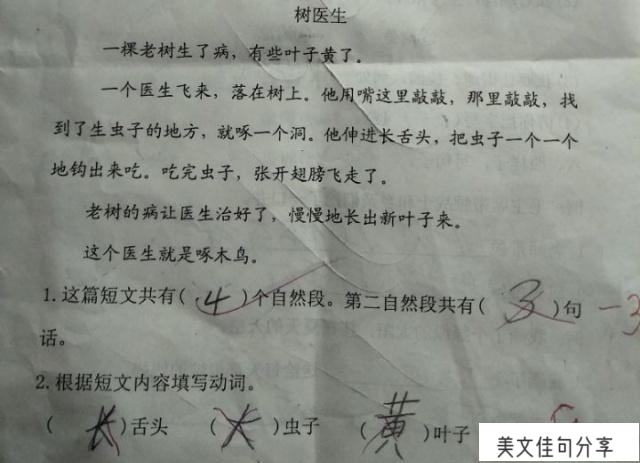 树医生
一棵老树生了病，有些叶子黄了。
一个医生飞来，落在树上。他用嘴这里敲敲，那里敲敲，找
到了生虫子的地方，就啄一个洞。他伸进长舌头，把虫子一个一个
地钩出来吃。吃完虫子，张开翅膀飞走了。
老树的病让医生治好了，慢慢地长出新叶子来。
这个医生就是啄木鸟。
1.这篇短文共有( 4 )个自然段。第二自然段共有( 3 )句 -3
话。
2.根据短文内容填写动词。
( 长 )舌头 ( 大 )虫子 ( 黄 )叶子
美文佳句分享